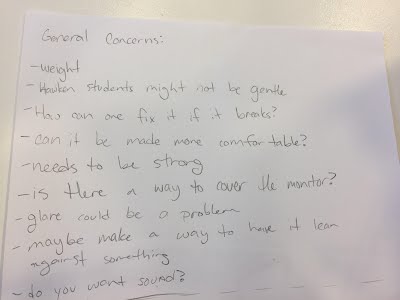 General Concerns:
-weight
-Hawken students might not be gentle
-How can one fix it if it breaks?
-can it be made more comfortable?
-needs to be strong
-is there a way to cover the monitor?
-glare could be a problem
-maybe make a way to have it lean
against something
-do you want sound?